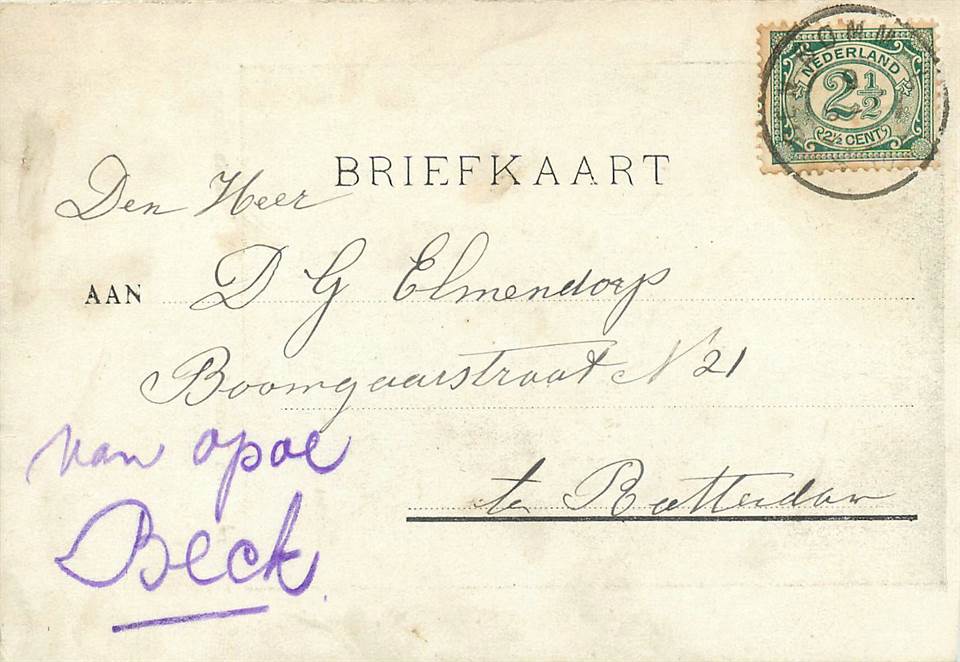 NEDERLAND
2½
2½ CENT
BRIEFKAART
Den Heer
AAN D G Elmendorp
Boomgaarstraat N 21
van opoe
te Rotterdam
Beck